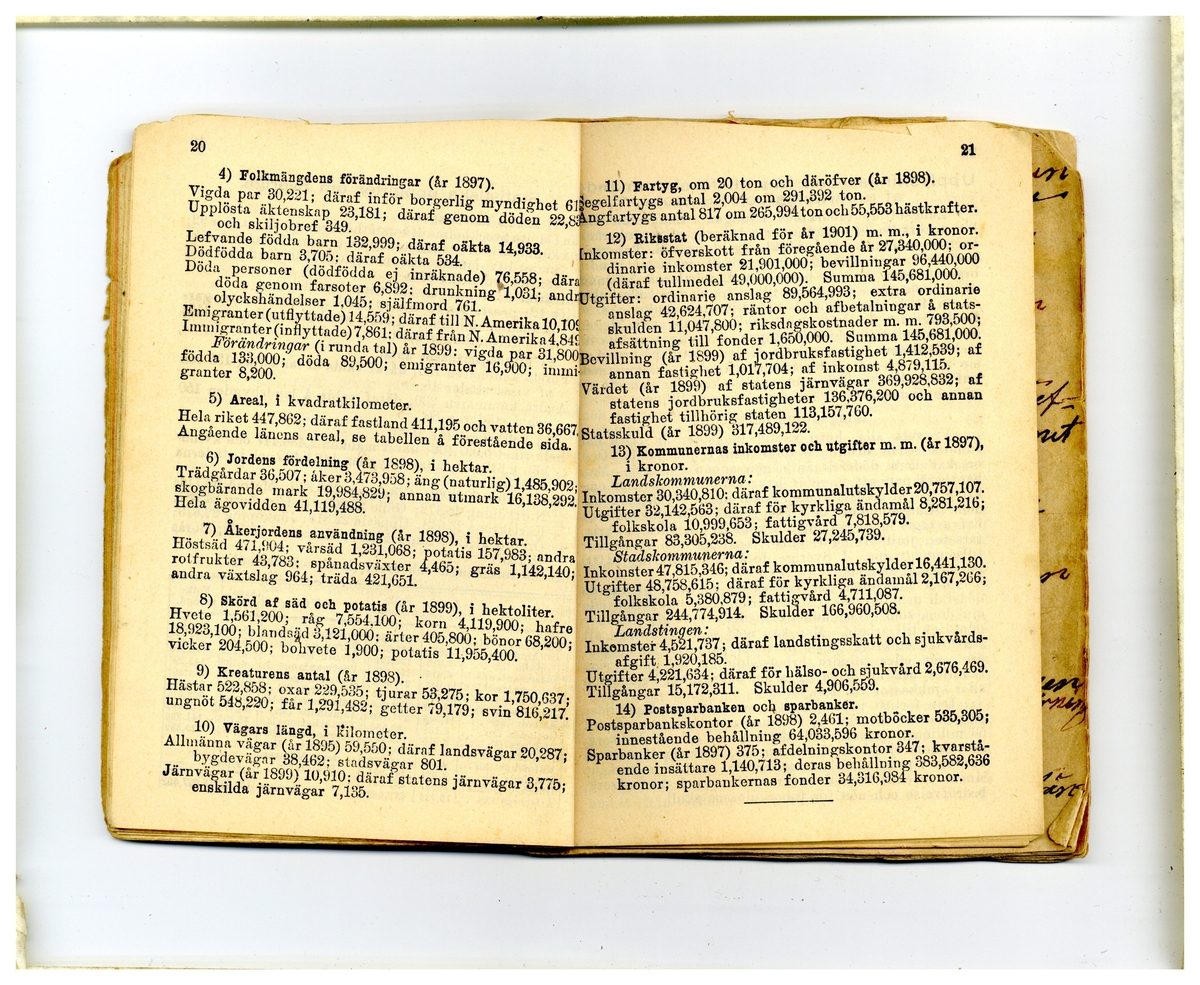 20
4) Folkmängdens förändringar (år 1897).
Vigda par 30,221; däraf inför borgerlig myndighet
Upplösta äktenskap 23,181; däraf genom döden
och skiljobref 349.
Lefvande födda barn 132,999; däraf oäkta 14,933.
Dödfödda barn 3,705; däraf oäkta 534.
Döda personer (dödfödda ej inräknade) 76,558;
döda genom farsoter 6,892; drunkning 1,031;
olyckshändelser 1,045; själfmord 761.
Emigranter (utflyttade) 14,559; däraf till N. Amerika
Immigranter (inflyttade) 7,861; däraf från N. Amerika
Förändringar (i runda tal) år 1899: vigda par 31,800
födda 133,000; döda 89,500; emigranter 16,900; immi-
granter 8,200.
5) Areal, i kvadratkilometer.
Hela riket 447,862; däraf fastland 411,195 och vatten 36,667.
Angående länens areal, se tabellen å förestående sida.
6) Jordens fördelning (år 1898), i hektar.
Trädgårdar 36,507; åker 3,473,958; äng (naturlig) 1,485,902;
skogbärande mark 19,984,829; annan utmark 16,138,292.
Hela ägovidden 41,119,488.
7) Åkerjordens användning (år 1898), i hektar.
Höstsäd 471,904; vårsäd 1,231,068; potatis 157,983; andra
rotfrukter 43,783; spånadsväxter 4,465; gräs 1,142,140;
andra växtslag 964; träda 421,651.
8) Skörd af säd och potatis (år 1899), i hektoliter.
Hvete 1,561,200; råg 7,554,100; korn 4,119,900; hafre
18,923,100; blandsäd 3,121,000; ärter 405,800; bönor 68,200;
vicker 204,500; bohvete 1,900; potatis 11,955,400.
9) Kreaturens antal (år 1898).
Hästar 522,858; oxar 229,535; tjurar 53,275; kor 1,750,637;
ungnöt 548,220; får 1,291,482; getter 79,179; svin 816,217.
10) Vägars längd, i kilometer.
Allmänna vägar (år 1895) 59,550; däraf landsvägar 20,287;
bygdevägar 38,462; stadsvägar 801.
Järnvägar (år 1899) 10,910; däraf statens järnvägar 3,775;
enskilda järnvägar 7,135.
21
11) Fartyg, om 20 ton och däröfver (år 1898).
Segelfartygs antal 2,004 om 291,392 ton.
Ångfartygs antal 817 om 265,994 ton och 55,553 hästkrafter.
12) Riksstat (beräknad för år 1901) m. m., i kronor.
Inkomster: öfverskott från föregående år 27,340,000; or-
dinarie inkomster 21,901,000; bevillningar 96,440,000
(däraf tullmedel 49,000,000). Summa 145,681,000.
Utgifter: ordinarie anslag 89,564,993; extra ordinarie
anslag 42,624,707; räntor och afbetalningar å stats-
skulden 11,047,800; riksdagskostnader m. m. 793,500;
afsättning till fonder 1,650,000. Summa 145,681,000.
Bevillning (år 1899) af jordbruksfastighet 1,412,539; af
annan fastighet 1,017,704; af inkomst 4,879,115.
Värdet (år 1899) af statens järnvägar 369,928,832; af
statens jordbruksfastigheter 136,376,200 och annan
fastighet tillhörig staten 113,157,760.
Statsskuld (år 1899) 317,489,122.
13) Kommunernas inkomster och utgifter m. m. (år 1897),
i kronor.
Landskommunerna:
Inkomster 30,340,810; däraf kommunalutskylder 20,757,107.
Utgifter 32,142,563; däraf för kyrkliga ändamål 8,281,216;
folkskola 10,999,653; fattigvård 7,818,579.
Tillgångar 83,305,238. Skulder 27,245,739.
Stadskommunerna:
Inkomster 47,815,346; däraf kommunalutskylder 16,441,130.
Utgifter 48,758,615; däraf för kyrkliga ändamål 2,167,266;
folkskola 5,380,879; fattigvård 4,711,087.
Tillgångar 244,774,914. Skulder 166,960,508.
Landstingen:
Inkomster 4,521,737; däraf landstingsskatt och sjukvårds-
afgift 1,920,185.
Utgifter 4,221,634; däraf för hälso- och sjukvård 2,676,469.
Tillgångar 15,172,311. Skulder 4,906,559.
14) Postsparbanken och sparbanker.
Postsparbankskontor (år 1898) 2,461; motböcker 535,305;
innestående behållning 64,033,596 kronor.
Sparbanker (år 1897) 375; afdelningskontor 347; kvarstå-
ende insättare 1,140,713; deras behållning 383,582,636
kronor; sparbankernas fonder 34,316,984 kronor.